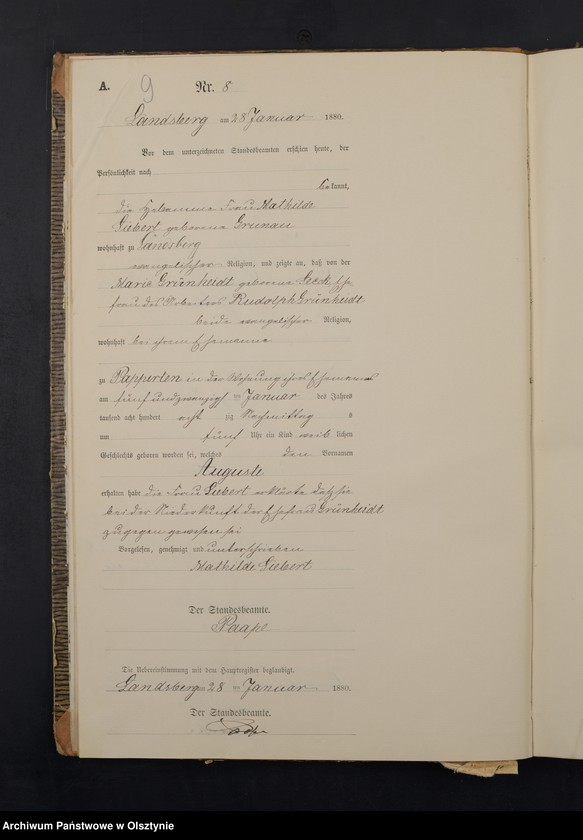 A.
9
Nr. 8
Landsberg am 28 Januar 1880.
Vor dem unterzeichneten Standesbeamten erschien heute, der
Persönlichkeit nach
bekannt,
die Hebamme Frau Mathilde
Siebert geborene Grunau
wohnhaft zu Landsberg
evangelischer Religion, und zeigte an, daß von der
Marie Grünheidt geborene Geck, Ehe
frau des Arbeiters Rudolph Grünheidt
beide evangelischer Religion,
wohnhaft bei ihrem Ehemanne
zu Papperten in der Wohnung ihres Ehemannes
am fünfundzwanzigsten Januar des Jahres
tausend acht hundert acht zig Nachmittag s
um fünf Uhr ein Kind weib lichen
Geschlechts geboren worden sei, welches den Vornamen
Auguste
erhalten habe die Frau Siebert erklärte daß sie
bei der Niederkunft der Ehefrau Grünheidt
zugegen gewesen sei
Vorgelesen, genehmigt und unterschrieben
Mathilde Siebert
Der Standesbeamte.
Paape
Die Uebereinstimmung mit dem Hauptregister beglaubigt.
Landsberg am 28 ten Januar 1880.
Der Standesbeamte.
Paape
Archiwum Państwowe w Olsztynie